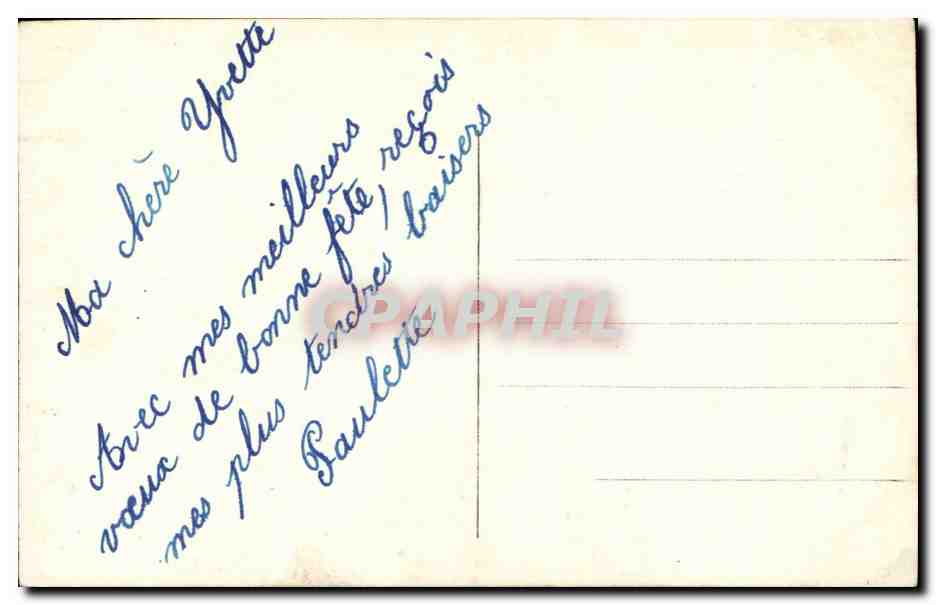 Ma chère Yvette
Avec mes meilleurs
vœux de bonne fête, reçois
mes plus tendres baisers
Paulette
CPAPHIL